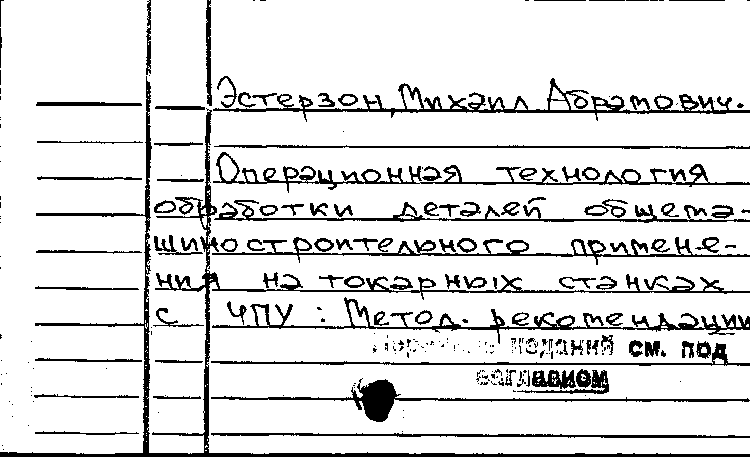 Эстерзон, Михаил Абрамович.
Операционная технология
обработки деталей общема-
шиностроительного примене-
ния на токарных станках
с ЧПУ : Метод. рекомендации
Перечень изданий см. под
заглавием